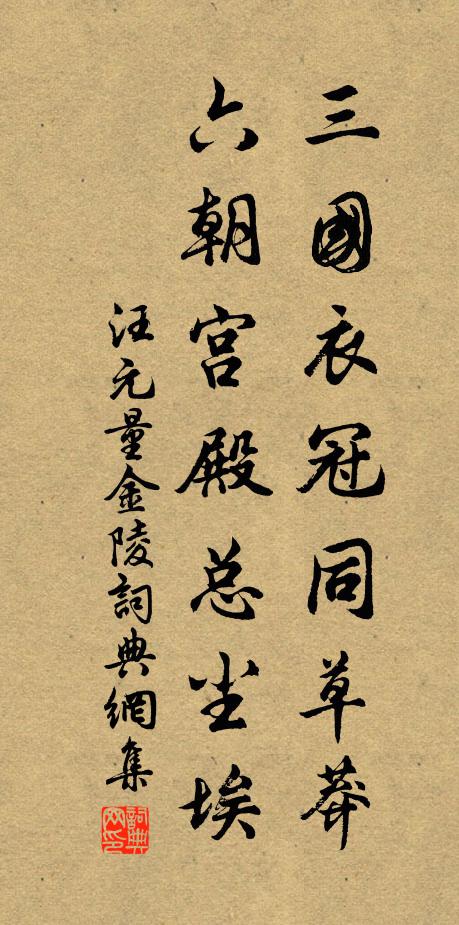 三國衣冠同草莽
六朝宫殿总尘埃
汪元量金陵詞典網集
詞典网印